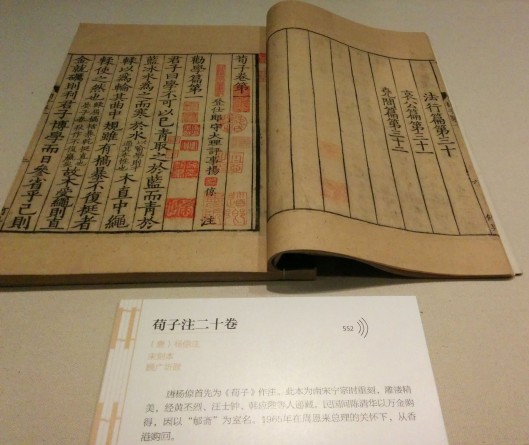 法行篇第三十
哀公篇第三十一
堯問篇第三十二
荀子卷第一
登仕郎守大理評事楊倞 注
勸學篇第一
君子曰學不可以已青取之於藍而青於
藍冰水為之而寒於水 木直中繩
輮以為輪其曲中規雖有槁暴不復挺者
輮使之然也 故木受繩則直
金就礪則利君子博學而日參省乎己則
荀子注二十卷
552
（唐）杨倞注
宋刻本
顾广圻跋
唐杨倞首先为《荀子》作注，此本为南宋宁宗时重刻，雕镂精
美，经黄丕烈、汪士钟、韩应陛等人递藏，民国间陈清华以万金购
得，因以“郇斋”为室名。1965年在周恩来总理的关怀下，从香
港购回。